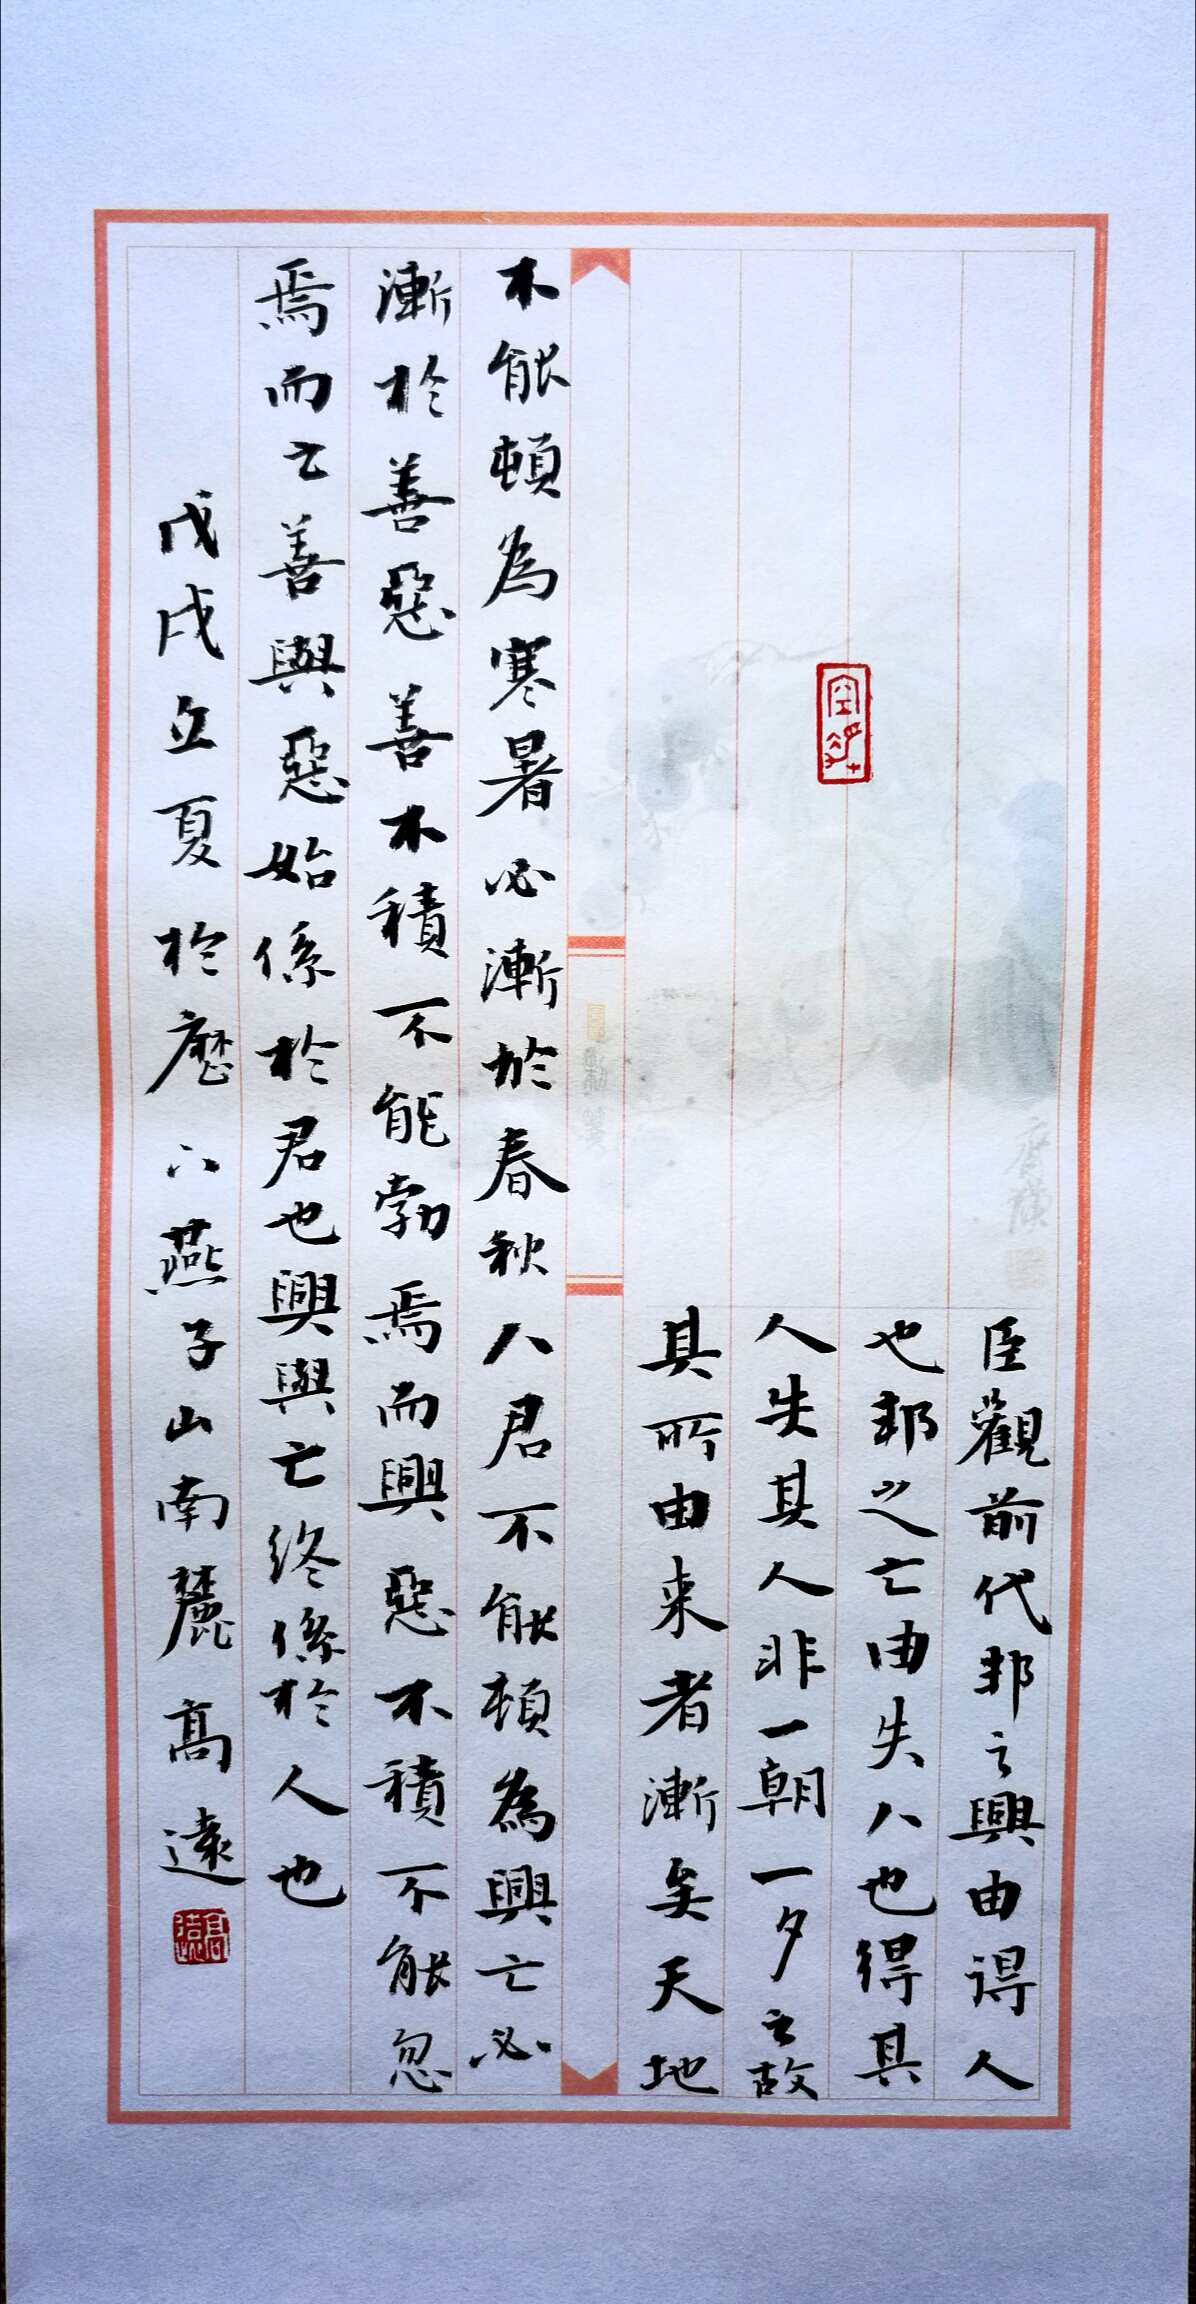 臣觀前代邦之興由得人
也邦之亡由失人也得其
人失其人非一朝一夕之故
其所由来者漸矣天地
不能頓為寒暑必漸於春秋人君不能頓為興亡必
漸於善惡善不積不能勃焉而興惡不積不能忽
焉而亡善與惡始係於君也興與亡終係於人也
戊戌立夏於歷下燕子山南麓高遠
高遠